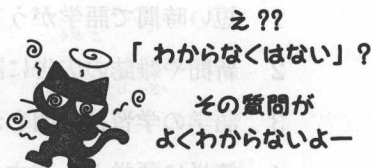 え??
「わからなくはない」?
その質問が
よくわからないよー